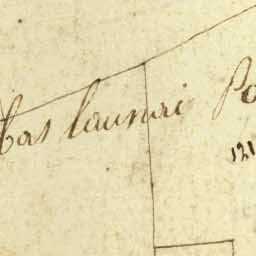 bas launai Po
121